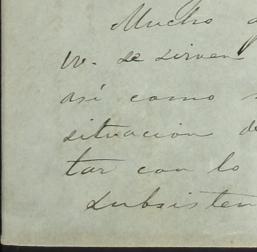 Mucho
V. se sirven
así como
situacion de
tar con lo
subsisten